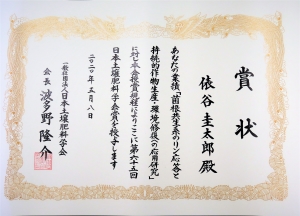 賞状
俵谷圭太郎殿
あなたの業績「菌根共生系のリン応答と
持続的作物生産・環境修復への応用研究」
に対し本会授賞規程によりここに第六十五回
日本土壌肥料学会賞を授与します
二〇二〇年五月八日
一般社団法人日本土壌肥料学会
会長 波多野隆介